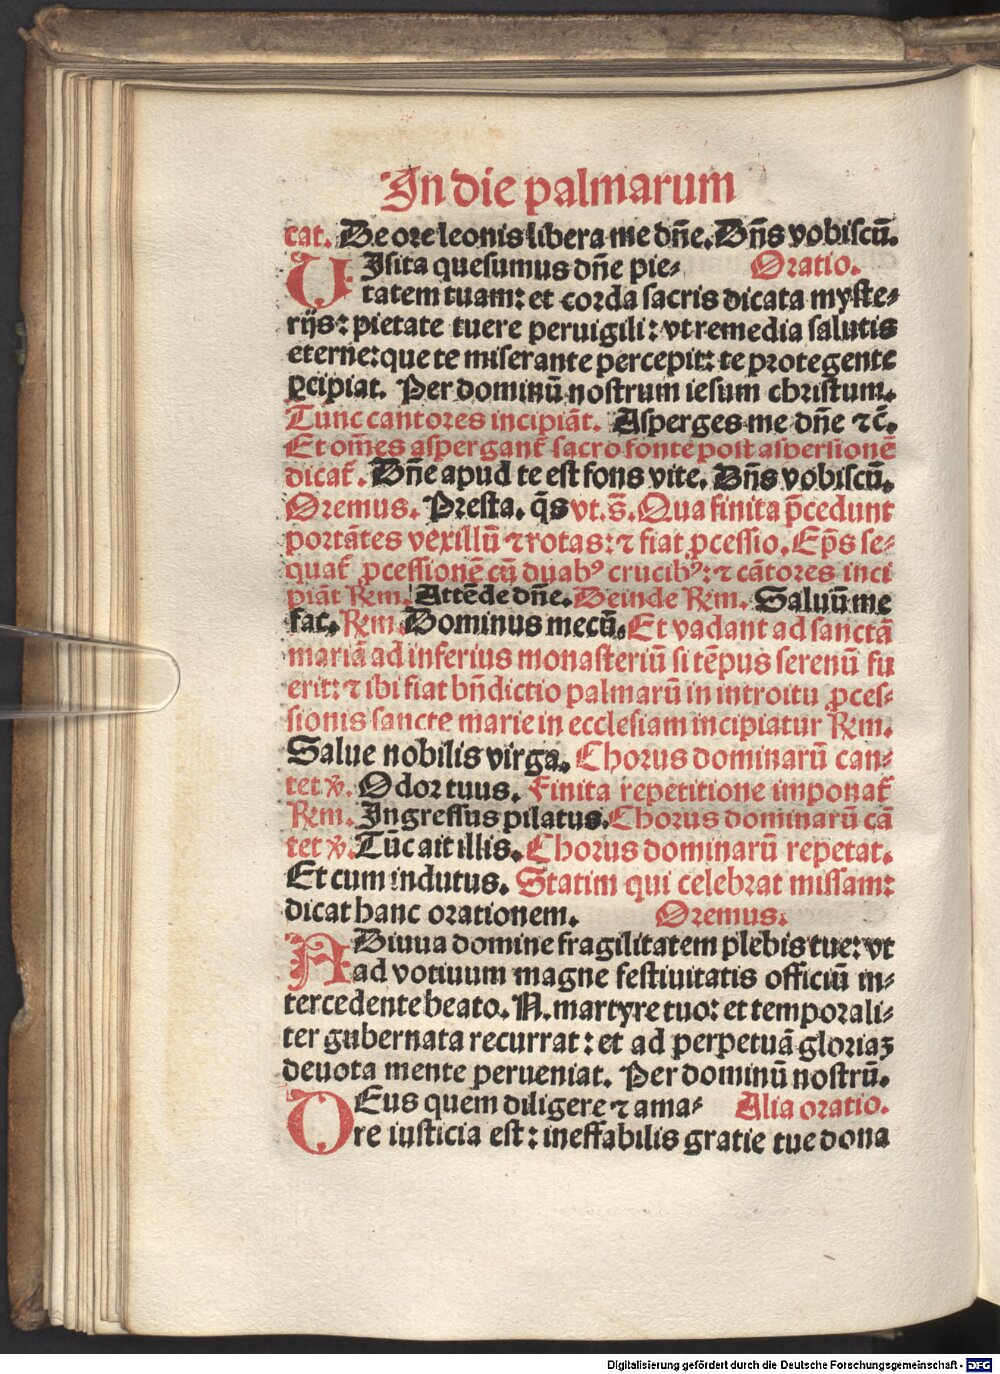 In die palmarum
cat. De ore leonis libera me dñe. Dñs vobiscũ.
VIsita quesumus dñe pie⸗ Oratio.
tatem tuam: et corda sacris dicata myste⸗
rijs: pietate tuere peruigili: vt remedia salutis
eterne: que te miserante percepit: te protegente
ꝑcipiat. Per dominũ nostrum iesum christum.
Tunc cantores incipiãt. Asperges me dñe ⁊c̃.
Et om̃es aspergant̃ sacro fonte post aspersionẽ
dicat̃. Dñe apud te est fons vite. Dñs vobiscũ.
Oremus. Presta. q̃s vt. s̃. Qua finita p̃cedunt
portãtes vexillũ ⁊ rotas: ⁊ fiat ꝓcessio. Ep̃s se⸗
quat̃ ꝓcessionẽ cũ duabꝰ crucibꝰ: ⁊ cãtores inci
piãt Rm̃. Attẽde dñe. Deinde Rm̃. Saluũ me
fac. Rm̃. Dominus mecũ. Et vadant ad sanctã
mariã ad inferius monasteriũ si tẽpus serenũ fu
erit: ⁊ ibi fiat bñdictio palmarũ in introitu ꝓces⸗
sionis sancte marie in ecclesiam incipiatur Rm̃.
Salue nobilis virga. Chorus dominarũ can⸗
tet ℣. Odor tuus. Finita repetitione imponat̃
Rm̃. Ingressus pilatus. Chorus dominarũ cã
tet ℣. Tũc ait illis. Chorus dominarũ repetat.
Et cum indutus. Statim qui celebrat missam:
dicat hanc orationem. Oremus.
ADiuua domine fragilitatem plebis tue: vt
ad votiuum magne festiuitatis officiũ in⸗
tercedente beato. N. martyre tuo: et temporali⸗
ter gubernata recurrat: et ad perpetuã gloriaꝫ
deuota mente perueniat. Per dominũ nostrũ.
DEus quem diligere ⁊ ama⸗ Alia oratio.
re iusticia est: ineffabilis gratie tue dona
Digitalisierung gefördert durch die Deutsche Forschungsgemeinschaft - DFG